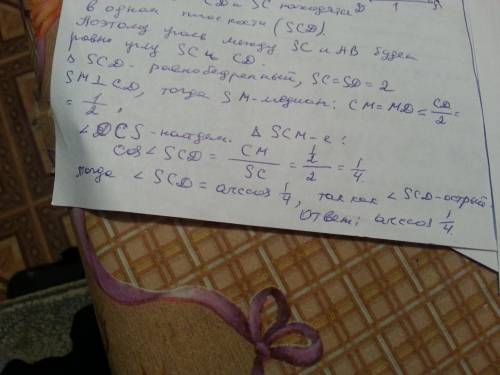 CD и SC находятся D 1
в одной плоскости (SCD).
Поэтому угол между SC и AB будет
равен углу SC и CD.
Δ SCD - равнобедренный, SC=SD=2
SM⊥CD, тогда SM-медиан: CM=MD=CD/2=
=1/2,
∠DCS-найдем. Δ SCM-е:
cos∠SCD = CM/SC = 1/2/2 = 1/4.
тогда ∠SCD = arccos 1/4, так как ∠SCD-острый.
Ответ: arccos 1/4.